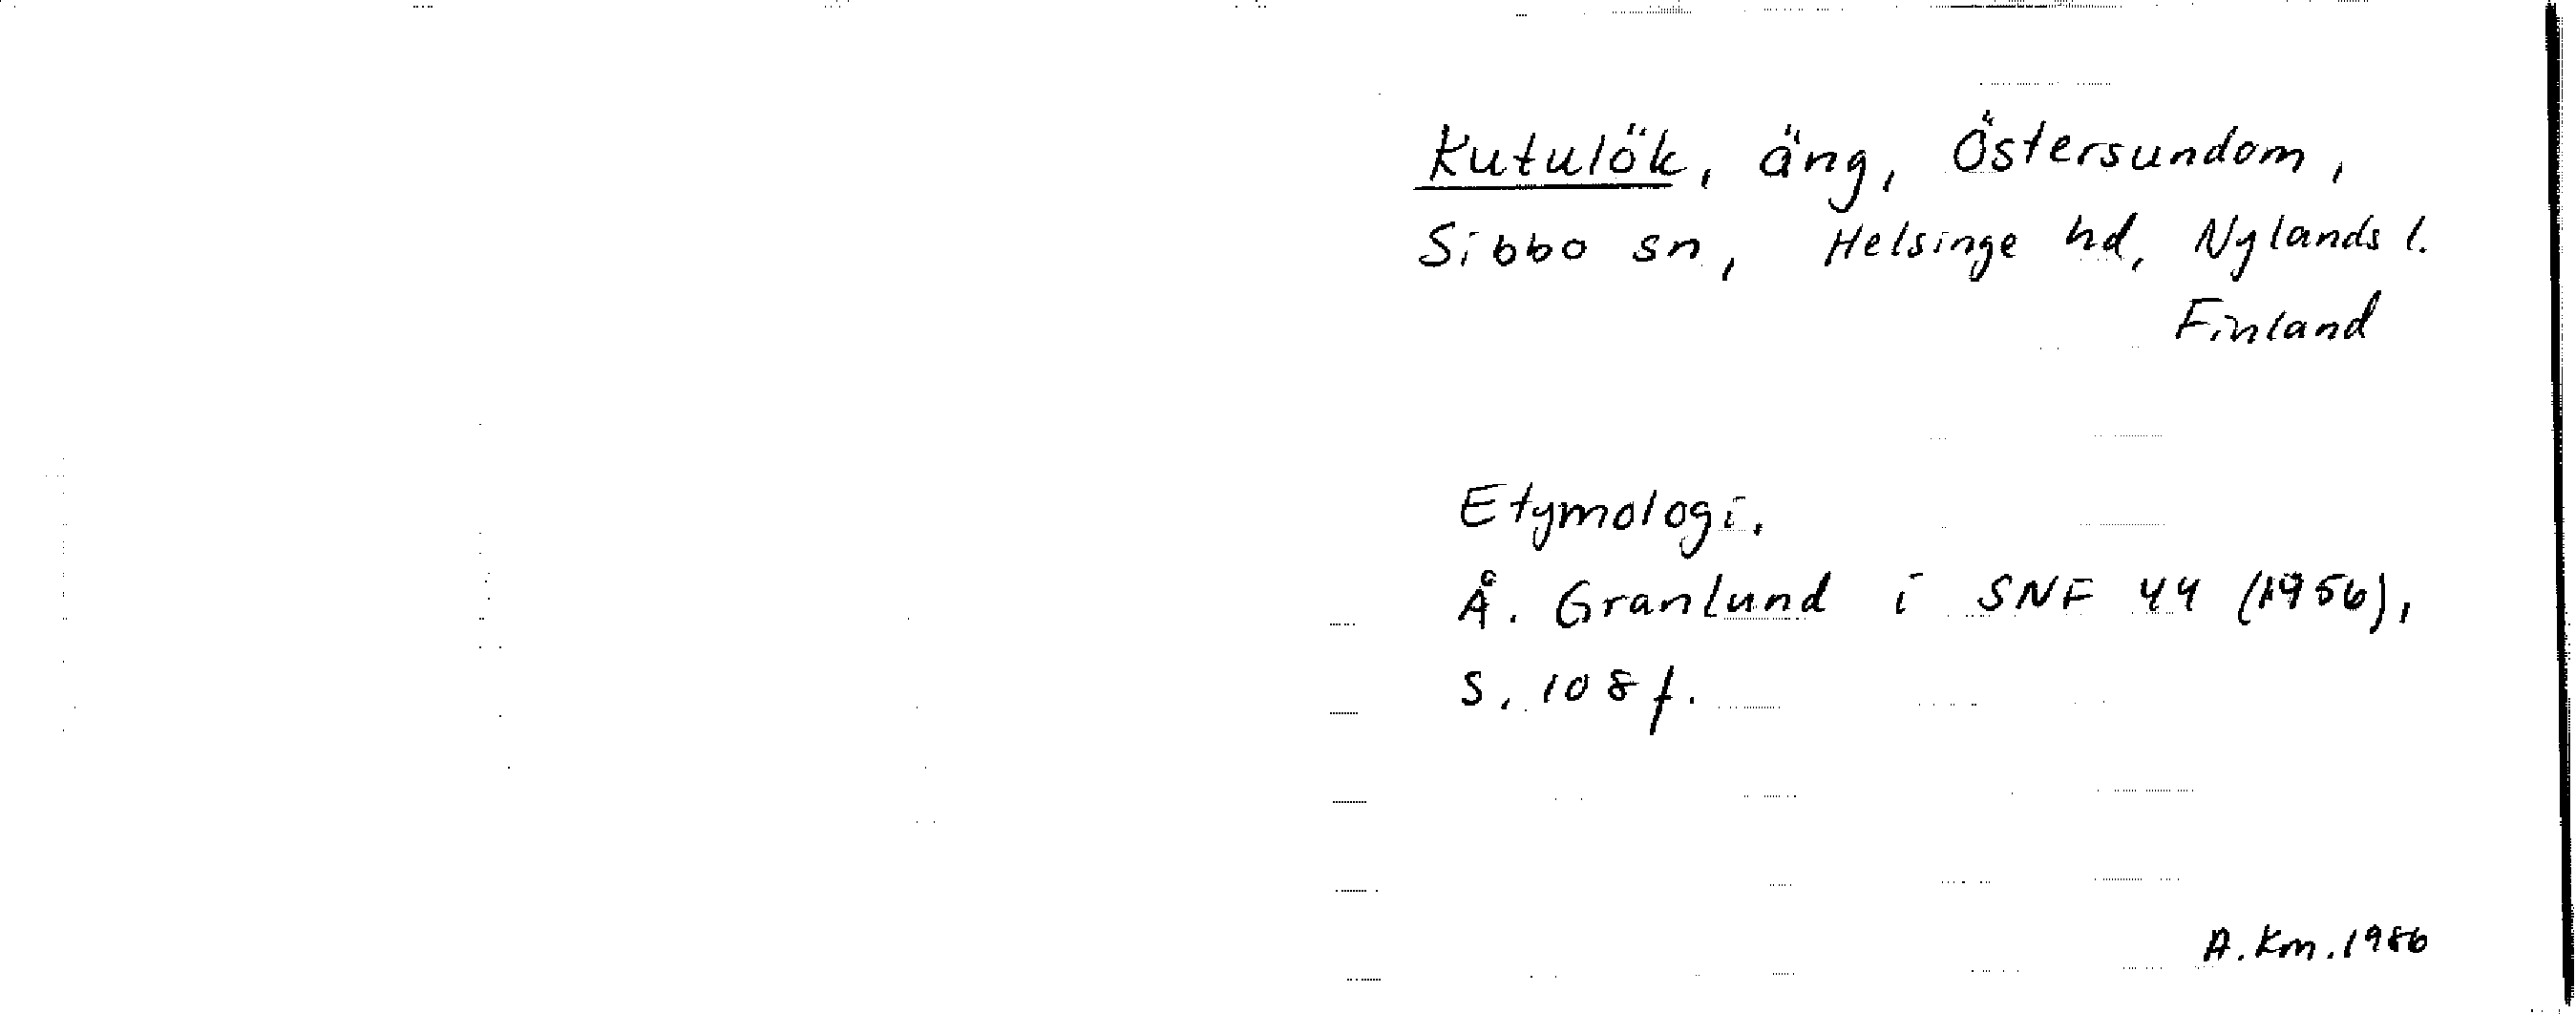 Kutulök, äng, Östersundom,
Sibbo sn, Helsinge hd, Nylands l.
Finland
Etymologi.
Å. Granlund i SNF 44 (1956),
S. 108 f.
A. Km. 1986